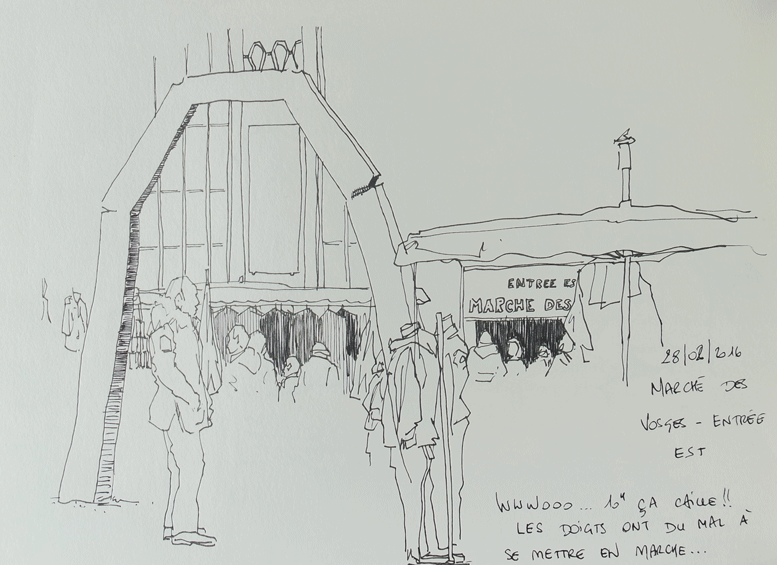 ENTREE ES
MARCHE DES
28/02/2016
MARCHÉ DES
VOSGES - ENTRÉE
EST
WWWOOO... ÇA CAILLE!!
LES DOIGTS ONT DU MAL À
SE METTRE EN MARCHE...